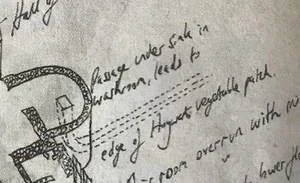 Hall of
Passage under sink in
washroom, leads to
edge of Hogwarts vegetable patch.
room overrun with
lower